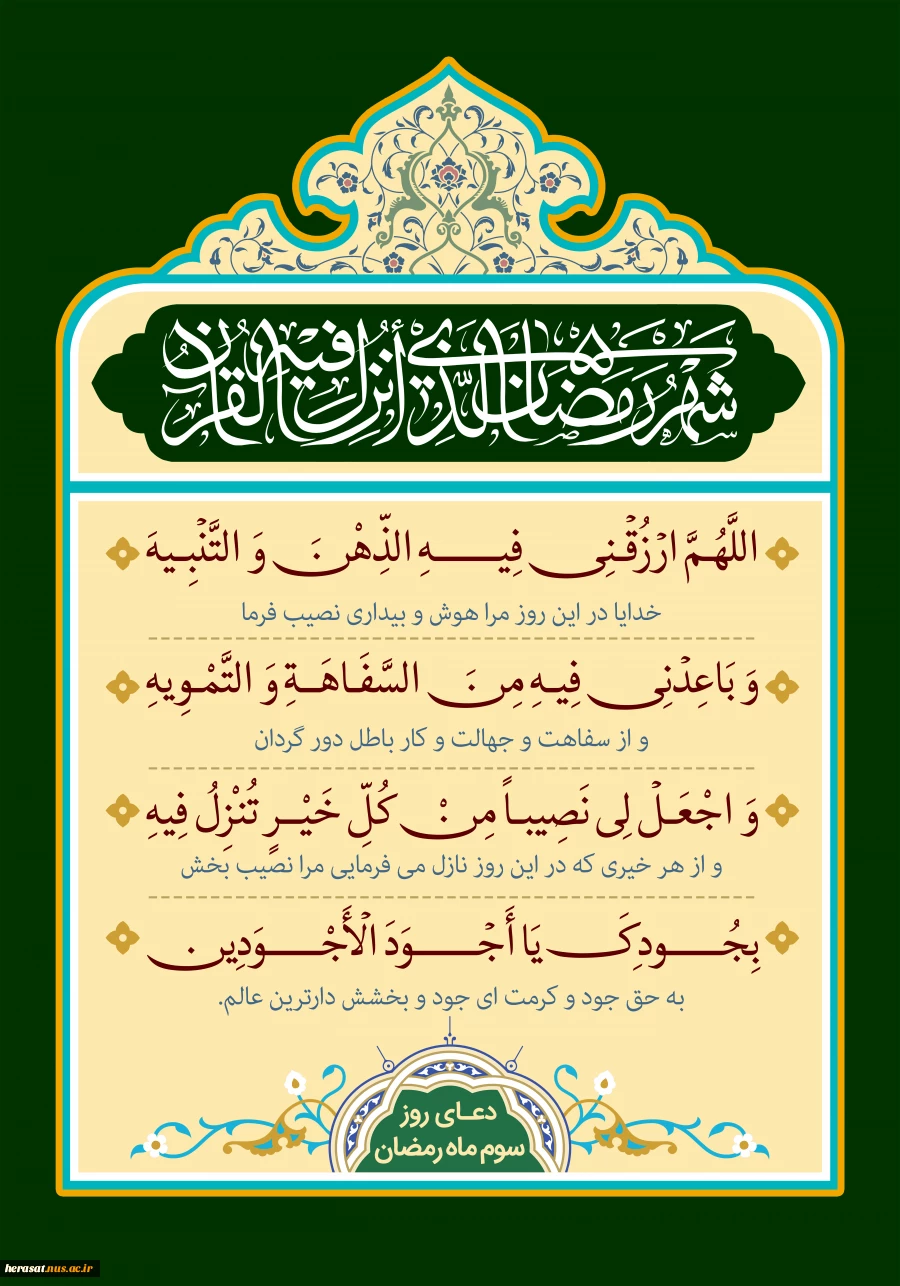 شَهْرُ رَمَضَانَ الَّذِي أُنْزِلَ فِيهِ الْقُرْآنُ
اللَّهُمَّ ارْزُقْنِی فِیهِ الذِّهْنَ وَ التَّنْبِیهَ
خدایا در این روز مرا هوش و بیداری نصیب فرما
وَ بَاعِدْنِی فِیهِ مِنَ السَّفَاهَةِ وَ التَّمْوِیهِ
و از سفاهت و جهالت و کار باطل دور گردان
وَ اجْعَلْ لِی نَصِیباً مِنْ کُلِّ خَیْرٍ تُنْزِلُ فِیهِ
و از هر خیری که در این روز نازل می فرمایی مرا نصیب بخش
بِجُودِکَ یَا أَجْوَدَ الْأَجْوَدِینَ
به حق جود و کرمت ای جود و بخشش دارترین عالم.
دعای روز
سوم ماه رمضان
herasat.nus.ac.ir